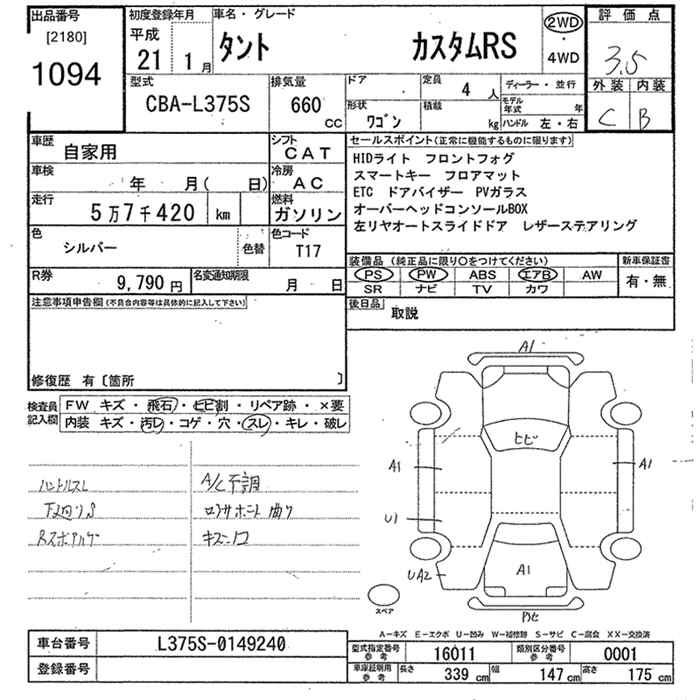 出品番号
[2180]
1094
初度登録年月
平成
21 1月
車名・グレード
タント カスタムRS
2WD
・
4WD
評価点
3.5
外装 内装
C B
型式
CBA-L375S
排気量
660 CC
ドア
形状
ワゴン
定員
4 人
積載
kg
ディーラー・並行
モデル年式 年
ハンドル 左・右
車歴
自家用
シフト
CAT
車検
年 月( 日)
冷房
AC
走行
5万7千420 km
燃料
ガソリン
色
シルバー
色替
色コード
T17
R券
9,790円
名変通知期限
月 日
セールスポイント(正常に機能するものに限ります)
HIDライト フロントフォグ
スマートキー フロアマット
ETC ドアバイザー PVガラス
オーバーヘッドコンソールBOX
左リヤオートスライドドア レザーステアリング
装備品(純正品に限り○をつけてください)
PS PW ABS エアB AW
SR ナビ TV カワ
新車保証書
有・無
後日品
取説
注意事項申告欄(不具合内容等は具体的に記入して下さい)
修復歴 有〔箇所 〕
検査員記入欄
FW キズ・飛石・ヒビ割・リペア跡・×要
内装 キズ・汚レ・コゲ・穴・スレ・キレ・破レ
ハンドルスレ
A/C不調
キズ凹
A1
ヒビ
A1
A1
U1
UA2
A1
スペア
A-キズ E-エクボ U-凹み W-補修跡 S-サビ C-腐会 XX-交換済
車台番号
L375S-0149240
登録番号
型式指定番号参考
16011
類別区分番号参考
0001
車庫証明用参考
長さ 339 cm
幅 147 cm
高さ 175 cm